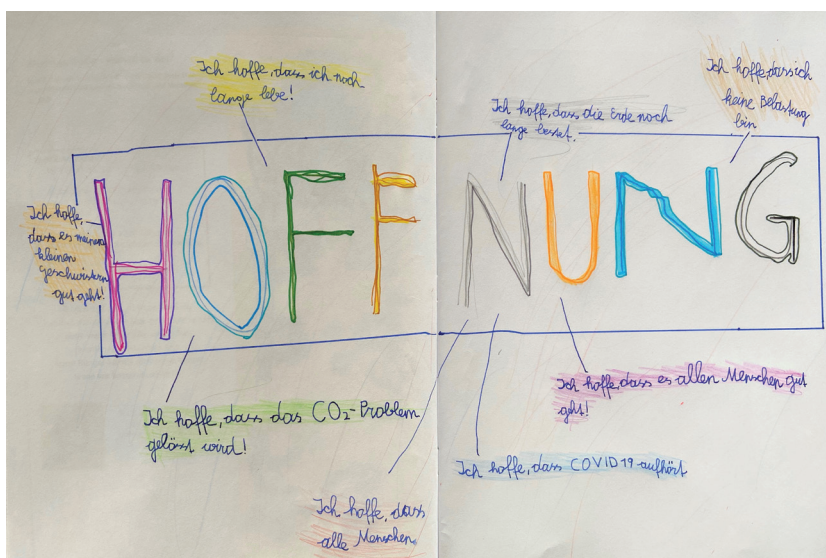 Ich hoffe, dass ich noch
lange lebe!
Ich hoffe, dass die Erde noch
lange bestet.
Ich hoffe, dass ich
keine Belastung
bin
HOFFNUNG
Ich hoffe,
dass es meinen
kleinen
Geschwistern
gut geht!
Ich hoffe, dass das CO₂-Problem
gelösst wird!
Ich hoffe, dass es allen Menschen gut
geht!
Ich hoffe, dass COVID19 aufhört
Ich hoffe, dass
alle Menschen